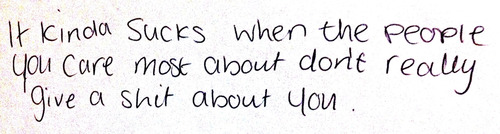 It kinda sucks when the people
you care most about don't really
give a shit about you.